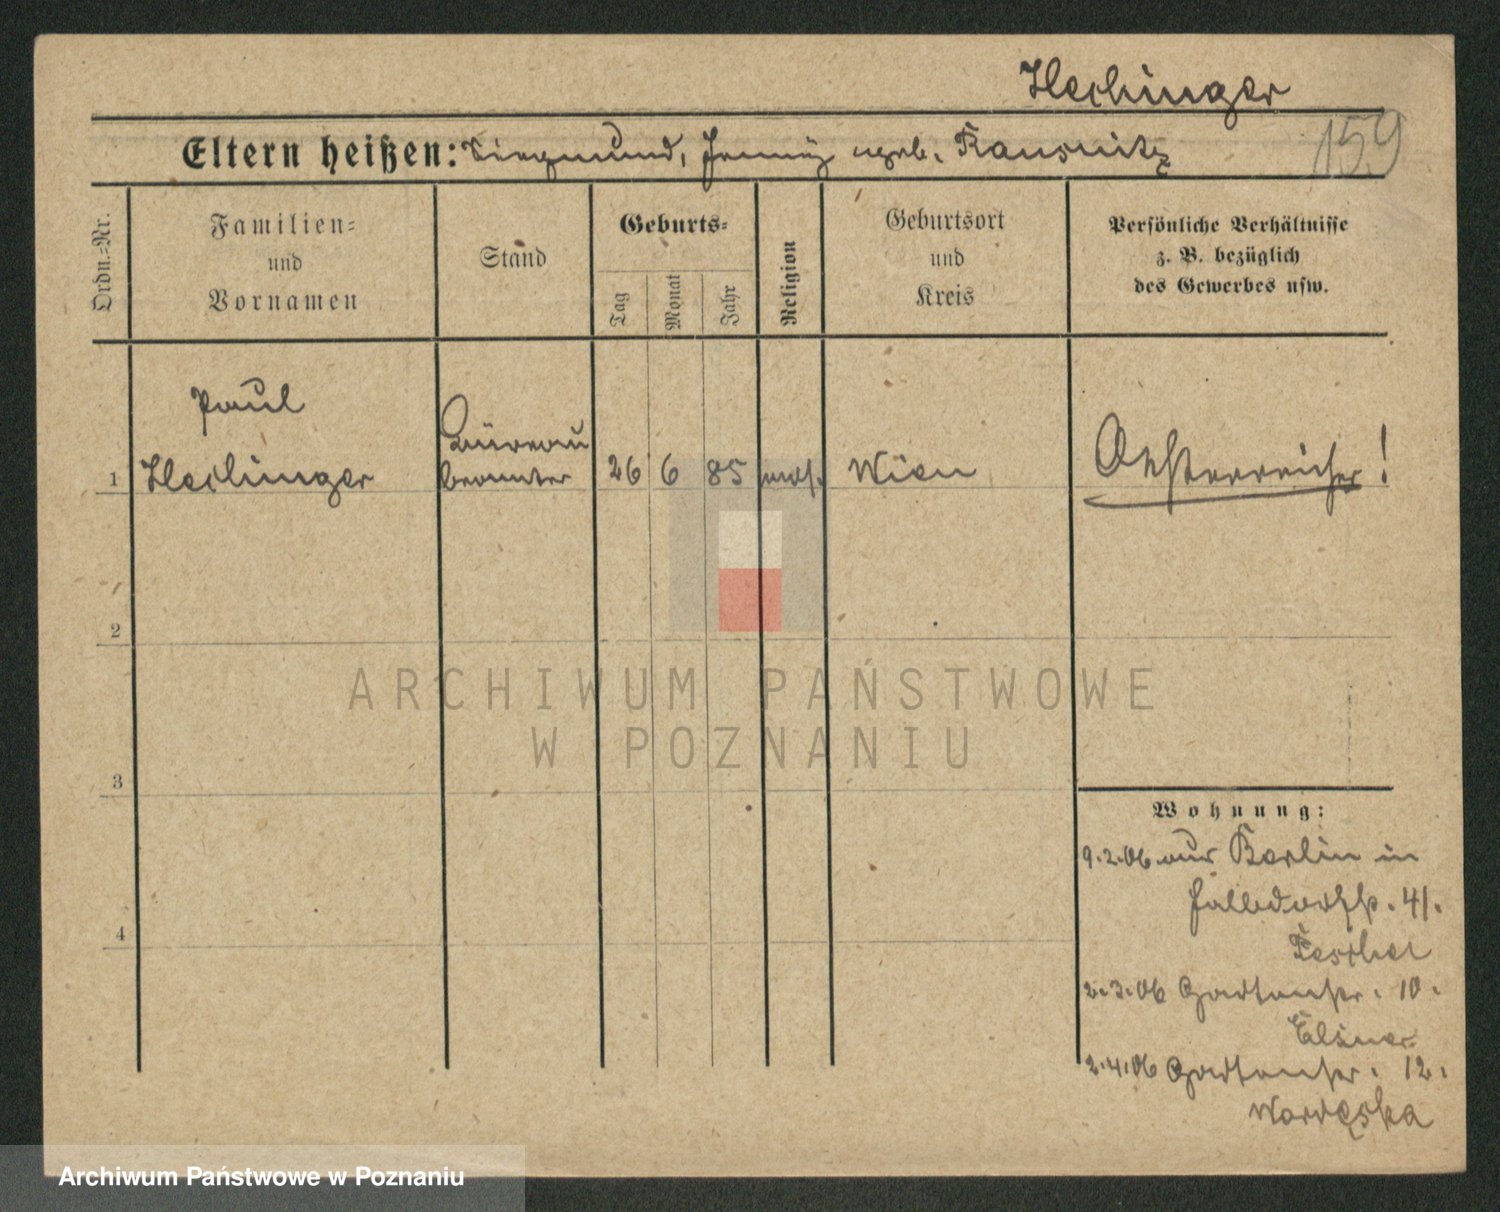 Hechinger
159
Eltern heißen: Siegmund, Jenny geb. Kausnitz
Ordn.-Nr.
Familien-
und
Vornamen
Stand
Geburts-
Tag
Monat
Jahr
Religion
Geburtsort
und
Kreis
Persönliche Verhältnisse
z. B. bezüglich
des Gewerbes usw.
Paul
Büreau
1 Hechinger beamter 26 6 85 mos. Wien Oesterreicher!
2
3
4
Wohnung:
9.2.06 aus Berlin in
41.
2.3.06 Gartenstr. 10.
Elsner
2.4.06 Gartenstr. 12.
ARCHIWUM PAŃSTWOWE
W POZNANIU
Archiwum Państwowe w Poznaniu